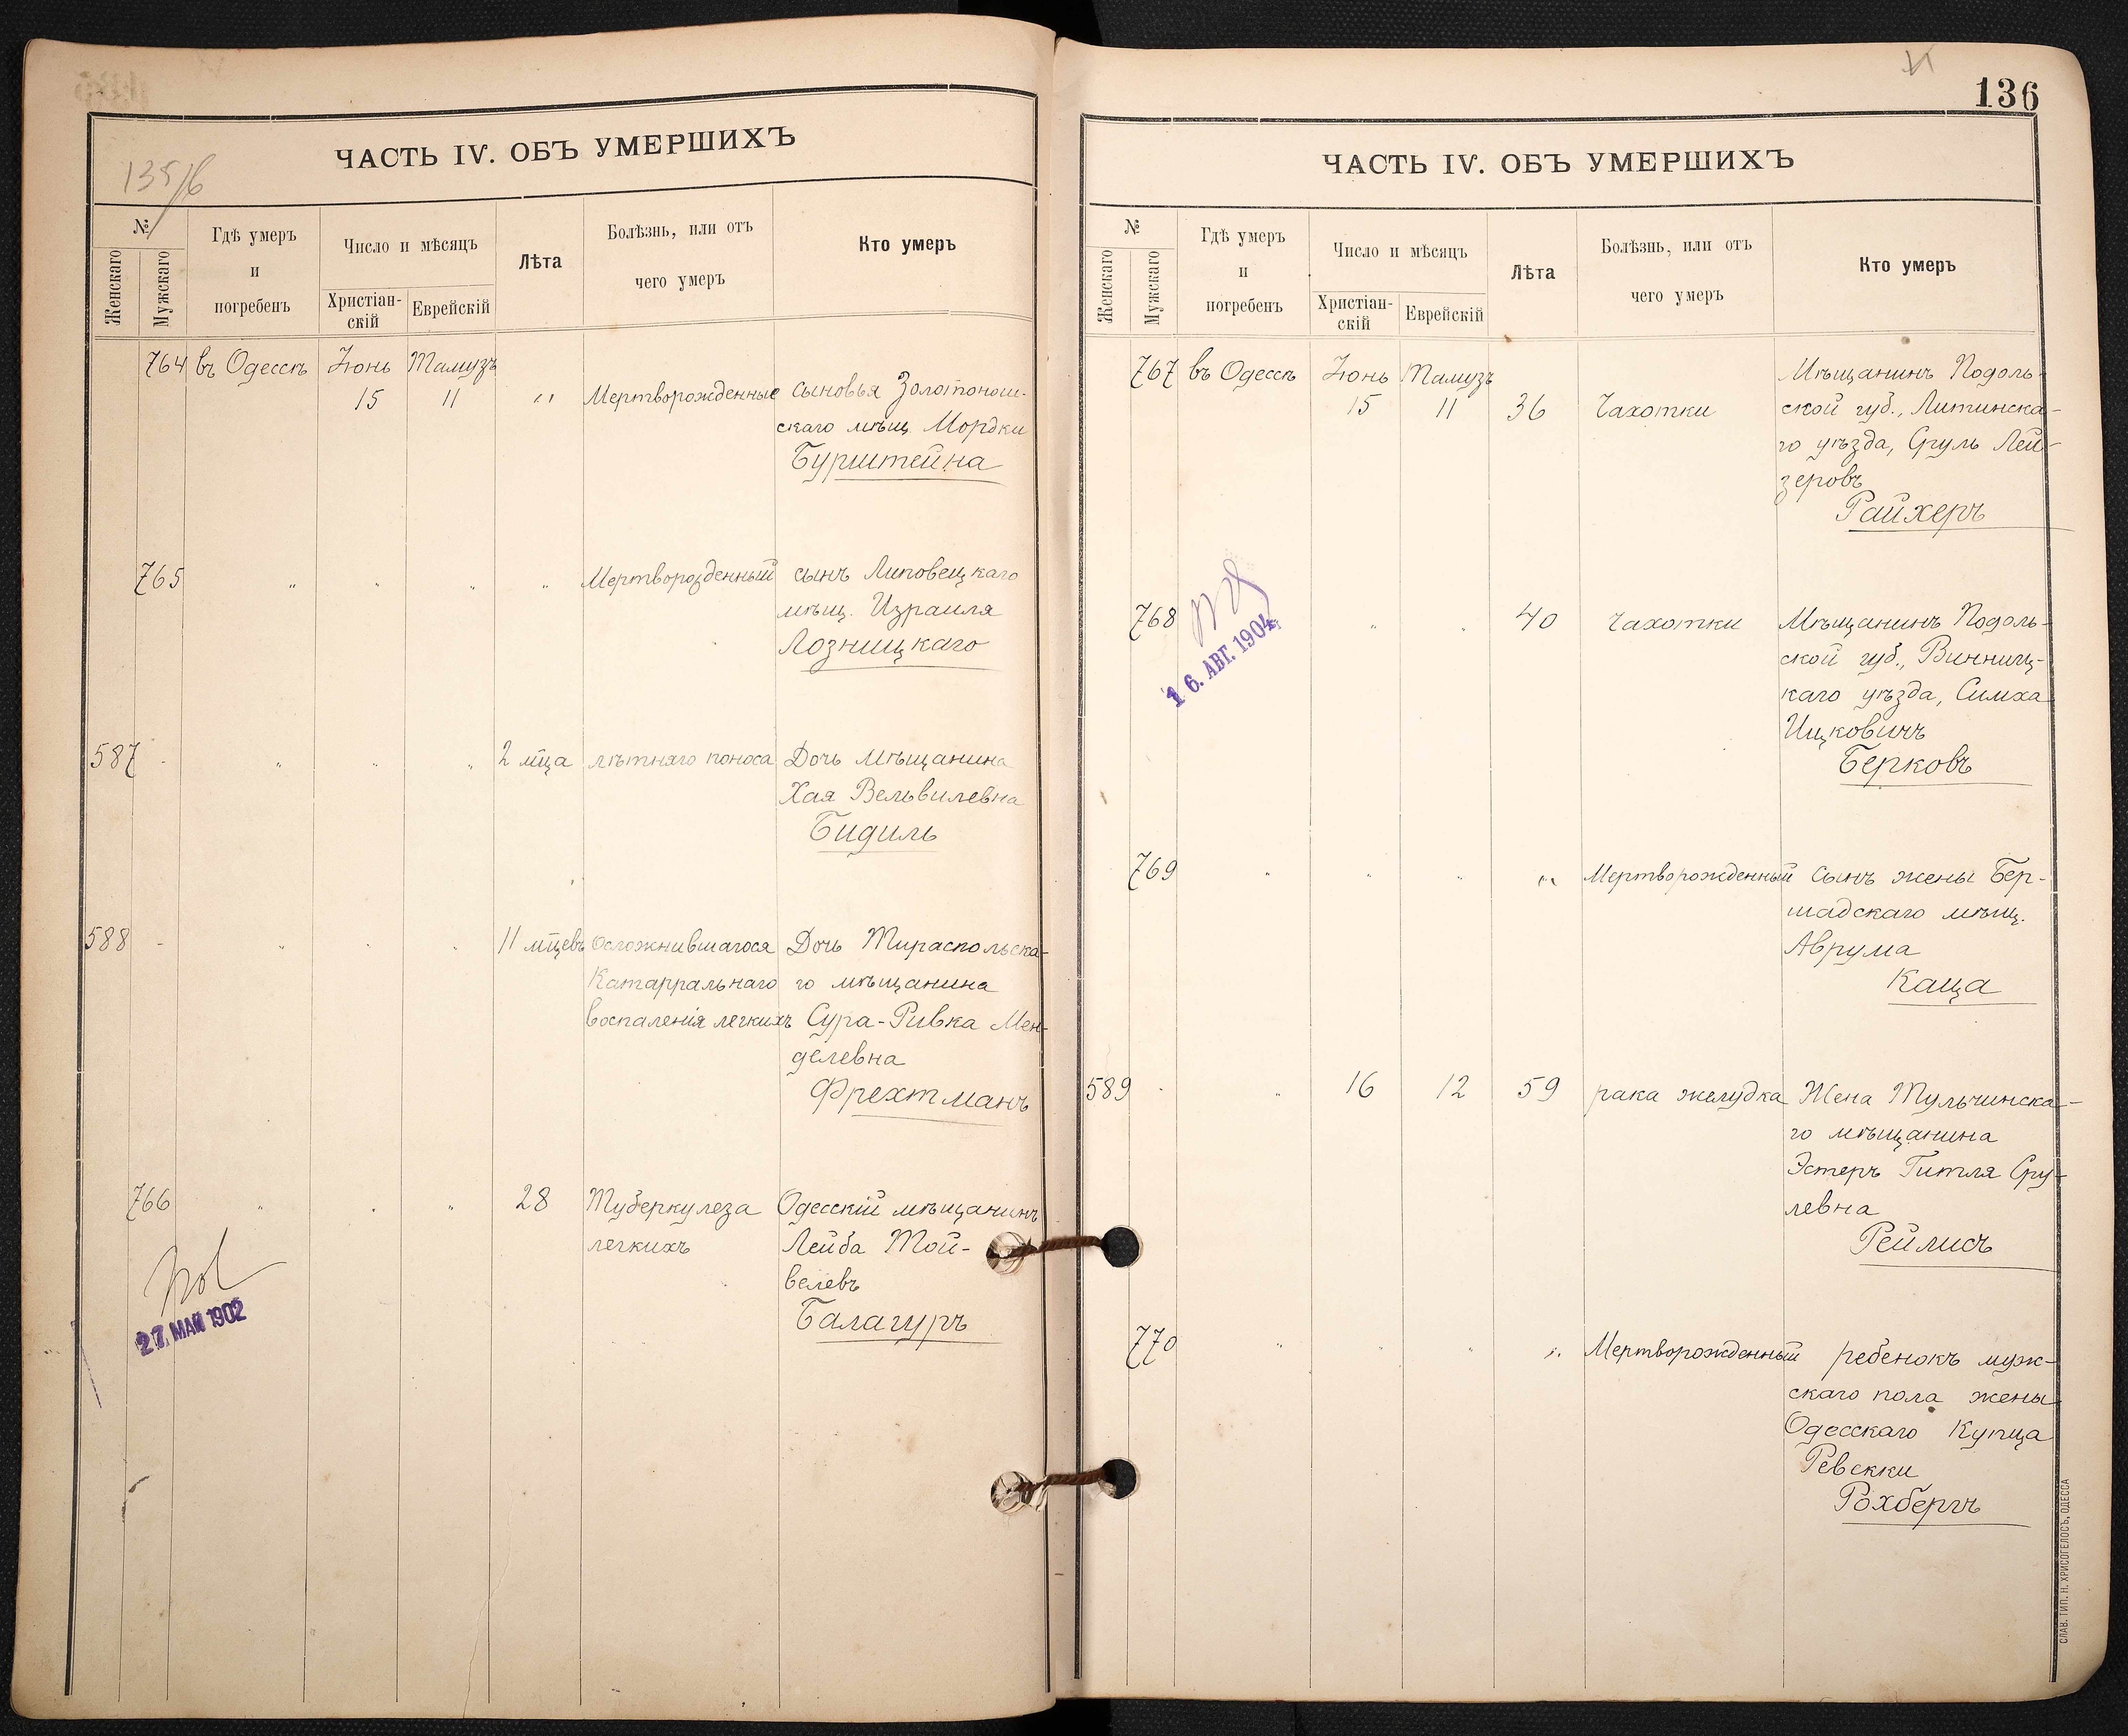 ЧАСТЬ IV. ОБЪ УМЕРШИХЪ
135/б
№
Женскаго
Мужскаго
Гдѣ умеръ
и
погребенъ
Число и мѣсяцъ
Христіан-
скій
Еврейскій
Лѣта
Болѣзнь, или отъ
чего умеръ
Кто умеръ
764 въ Одессѣ Іюнь Тамузъ
15 11 " Мертворожденные сыновья Золотонош-
скаго мѣщ. Мордки
Бурштейна
765 " " " " Мертворожденный сынъ Липовецкаго
мѣщ. Израиля
Лозницкаго
587 " " " 2 мца лѣтняго поноса Дочь мѣщанина
Хая Вельвилевна
Бидиль
588 " " " 11 мцевъ Осложнившагося Дочь Тираспольска-
Катарральнаго го мѣщанина
воспаленія легкихъ Сура-Ривка Мен-
делевна
Фрехтманъ
766 " " " 28 Туберкулеза Одесскій мѣщанинъ
легкихъ Лейба Той-
велевъ
Балагуръ
27. МАЙ 1902
136
ЧАСТЬ IV. ОБЪ УМЕРШИХЪ
№
Женскаго
Мужскаго
Гдѣ умеръ
и
погребенъ
Число и мѣсяцъ
Христіан-
скій
Еврейскій
Лѣта
Болѣзнь, или отъ
чего умеръ
Кто умеръ
767 въ Одессѣ Іюнь Тамузъ Мѣщанинъ Подоль-
15 11 36 Чахотки ской губ., Литинска-
го уѣзда, Сруль Лей-
зеровъ
Райхеръ
768 " " 40 Чахотки Мѣщанинъ Подоль-
ской губ., Винниц-
каго уѣзда, Симха
Ицковичъ
Берковъ
16. АВГ. 1904
769 " " " " Мертворожденный Сынъ жены Бер-
шадскаго мѣщ.
Аврума
Каца
589 " 16 12 59 рака желудка Жена Тульчинска-
го мѣщанина
Эстеръ Гитля Сру-
левна
Рейлисъ
770 " " " " Мертворожденный ребенокъ муж-
скаго пола жены
Одесскаго Купца
Ревекки
Рохбергъ
СЛАВ. ТИП. Н. ХРИСОГЕЛОСЪ, ОДЕССА